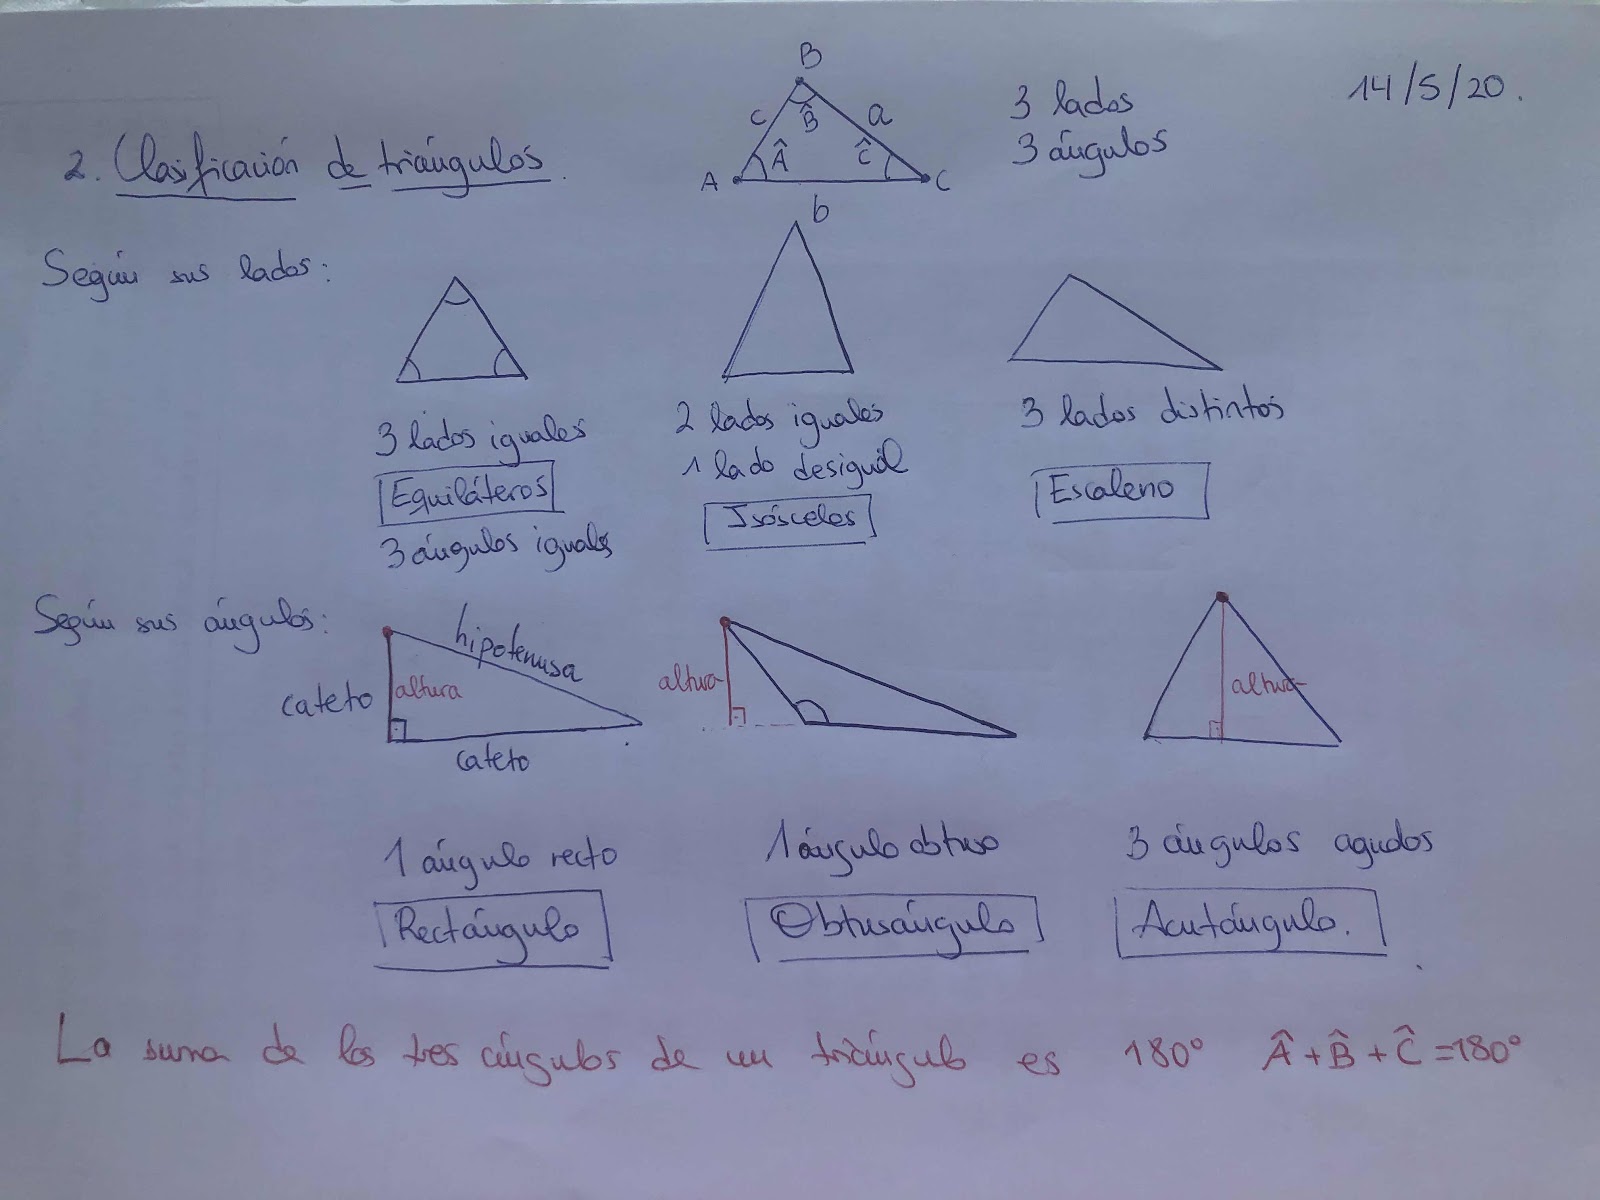 14/5/20.
2. Clasificación de triángulos.
B
c B̂ a
A Â Ĉ C
b
3 lados
3 ángulos
Según sus lados:
3 lados iguales
Equiláteros
3 ángulos iguales
2 lados iguales
1 lado desigual
Isósceles
3 lados distintos
Escaleno
Según sus ángulos:
hipotenusa
cateto altura
cateto
altura
altura
1 ángulo recto
Rectángulo
1 ángulo obtuso
Obtusángulo
3 ángulos agudos
Acutángulo.
La suma de los tres ángulos de un triángulo es 180° Â + B̂ + Ĉ = 180°